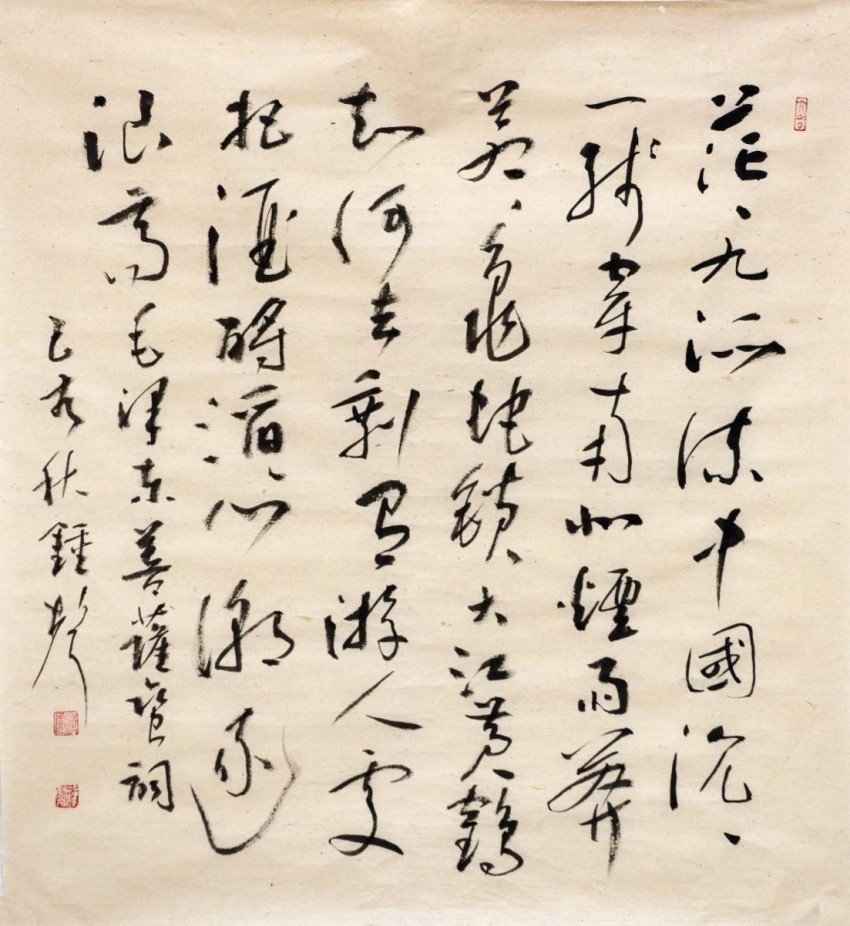 茫〻九派流中國沉〻
一線穿南北煙雨莽
蒼〻龜蛇鎖大江黃鶴
知何去剩有游人處
把酒酹滔〻心潮逐
浪高毛澤東菩薩蠻詞
己亥秋鍾